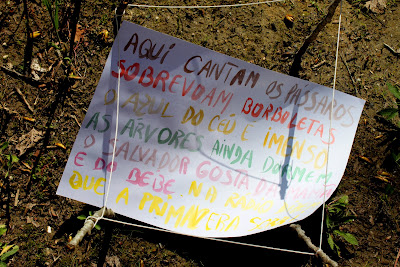 AQUI CANTAM OS PÁSSAROS
SOBREVOAM BORBOLETAS
O AZUL DO CÉU É IMENSO
AS ÁRVORES AINDA DORMEM
O SALVADOR GOSTA DA
E DO BEBÉ NA
QUE A PRIMAVERA